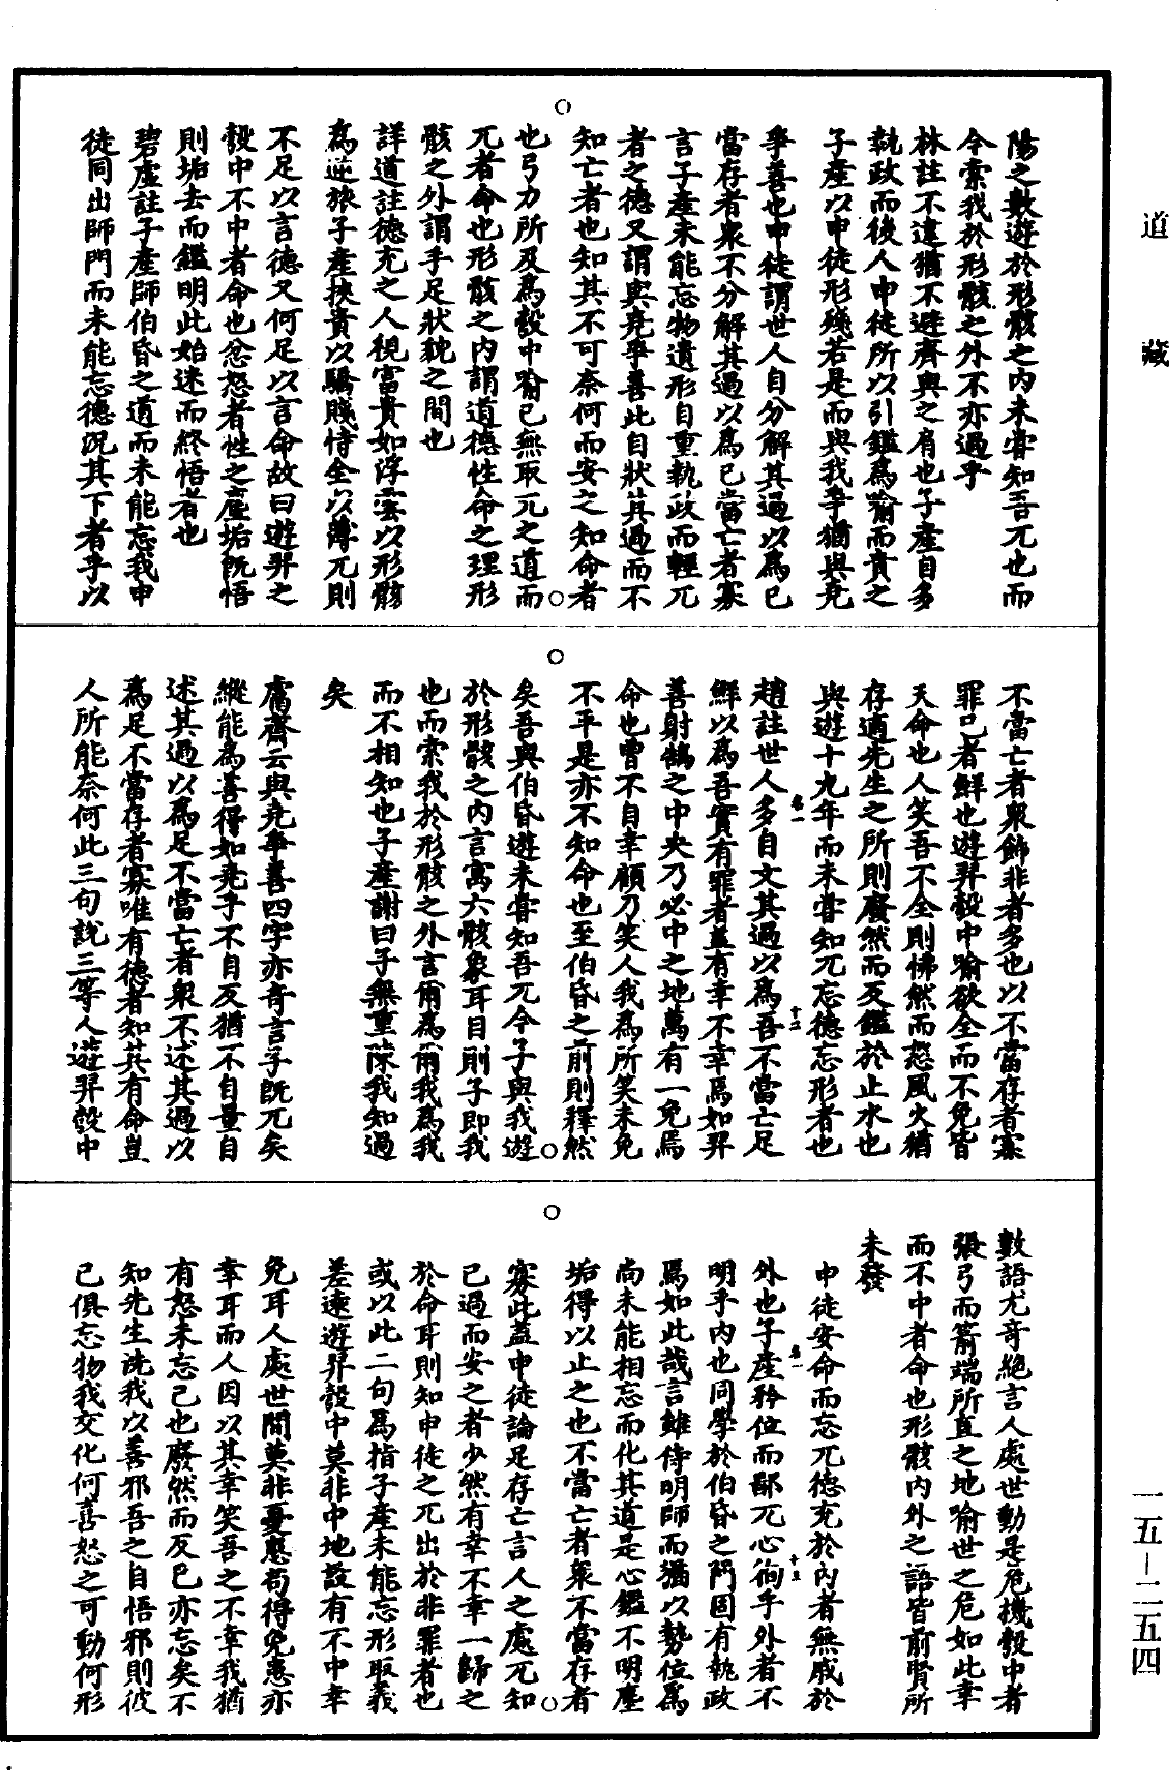 道藏
陽之數遊於形骸之內未嘗知吾兀也而
今索我於形骸之外不亦過乎
林註不違猶不避齊與之肩也子產自多
執政而後人申徒所以引鑑為喻而責之
子產以申徒形殘若是而與我爭猶與堯
爭善也申徒謂世人自分解其過以為已
當存者衆不分解其過以為已當亡者寡
言子產未能忘物遺形自重執政而輕兀
者之德又謂與堯爭善此自狀其過而不
知亡者也知其不可奈何而安之知命者
也弓力所及為彀中喻已無取兀之道而
兀者命也形骸之內謂道德性命之理形
骸之外謂手足狀貌之間也
詳道註德充之人視富貴如浮雲以形骸
為逆旅子產挾貴以驕賤恃全以薄兀則
不足以言德又何足以言命故曰遊羿之
彀中不中者命也忿怒者性之塵垢既悟
則垢去而鑑明此始迷而終悟者也
碧虛註子產師伯昏之道而未能忘我申
徒同出師門而未能忘德況其下者乎以
不當亡者衆飾非者多也以不當存者寡
罪已者鮮也遊羿彀中喻欲全而不免皆
天命也人笑吾不全則怫然而怒風火猶
存適先生之所則廢然而反鑑於止水也
與遊十九年而未嘗知兀忘德忘形者也
趙註世人多自文其過以為吾不當亡足
鮮以為吾實有罪者蓋有幸不幸焉如羿
善射鵠之中央乃必中之地萬有一免焉
命也曾不自幸顧乃笑人我為所笑未免
不平是亦不知命也至伯昏之前則釋然
矣吾與伯昏遊未嘗知吾兀今子與我遊
於形骸之內言寓六骸象耳目則子即我
也而索我於形骸之外言爾為爾我為我
而不相知也子產謝曰子無重陳我知過
矣
鬳齋云與堯爭善四字亦奇言子既兀矣
縱能為善得如堯乎不自反猶不自量自
述其過以為足不當亡者衆不述其過以
為足不當存者寡唯有德者知其有命豈
人所能奈何此三句說三等人遊羿彀中
數語尤奇絕言人處世動是危機彀中者
張弓而箭端所直之地喻世之危如此幸
而不中者命也形骸內外之語皆前賢所
未發
申徒安命而忘兀德充於內者無戚於
外也子產矜位而鄙兀心徇乎外者不
明乎內也同學於伯昏之門固有執政
焉如此哉言雖侍明師而猶以勢位為
尚未能相忘而化其道是心鑑不明塵
垢得以止之也不當亡者衆不當存者
寡此蓋申徒論足存亡言人之處兀知
已過而安之者少然有幸不幸一歸之
於命耳則知申徒之兀出於非罪者也
或以此二句為指子產未能忘形取義
差遠遊羿彀中莫非中地設有不中幸
免耳人處世間莫非憂患苟得免患亦
幸耳而人因以其幸笑吾之不幸我猶
有怒未忘己也廢然而反已亦忘矣不
知先生洗我以善邪吾之自悟邪則彼
已俱忘物我交化何喜怒之可動何形
一五—二五四